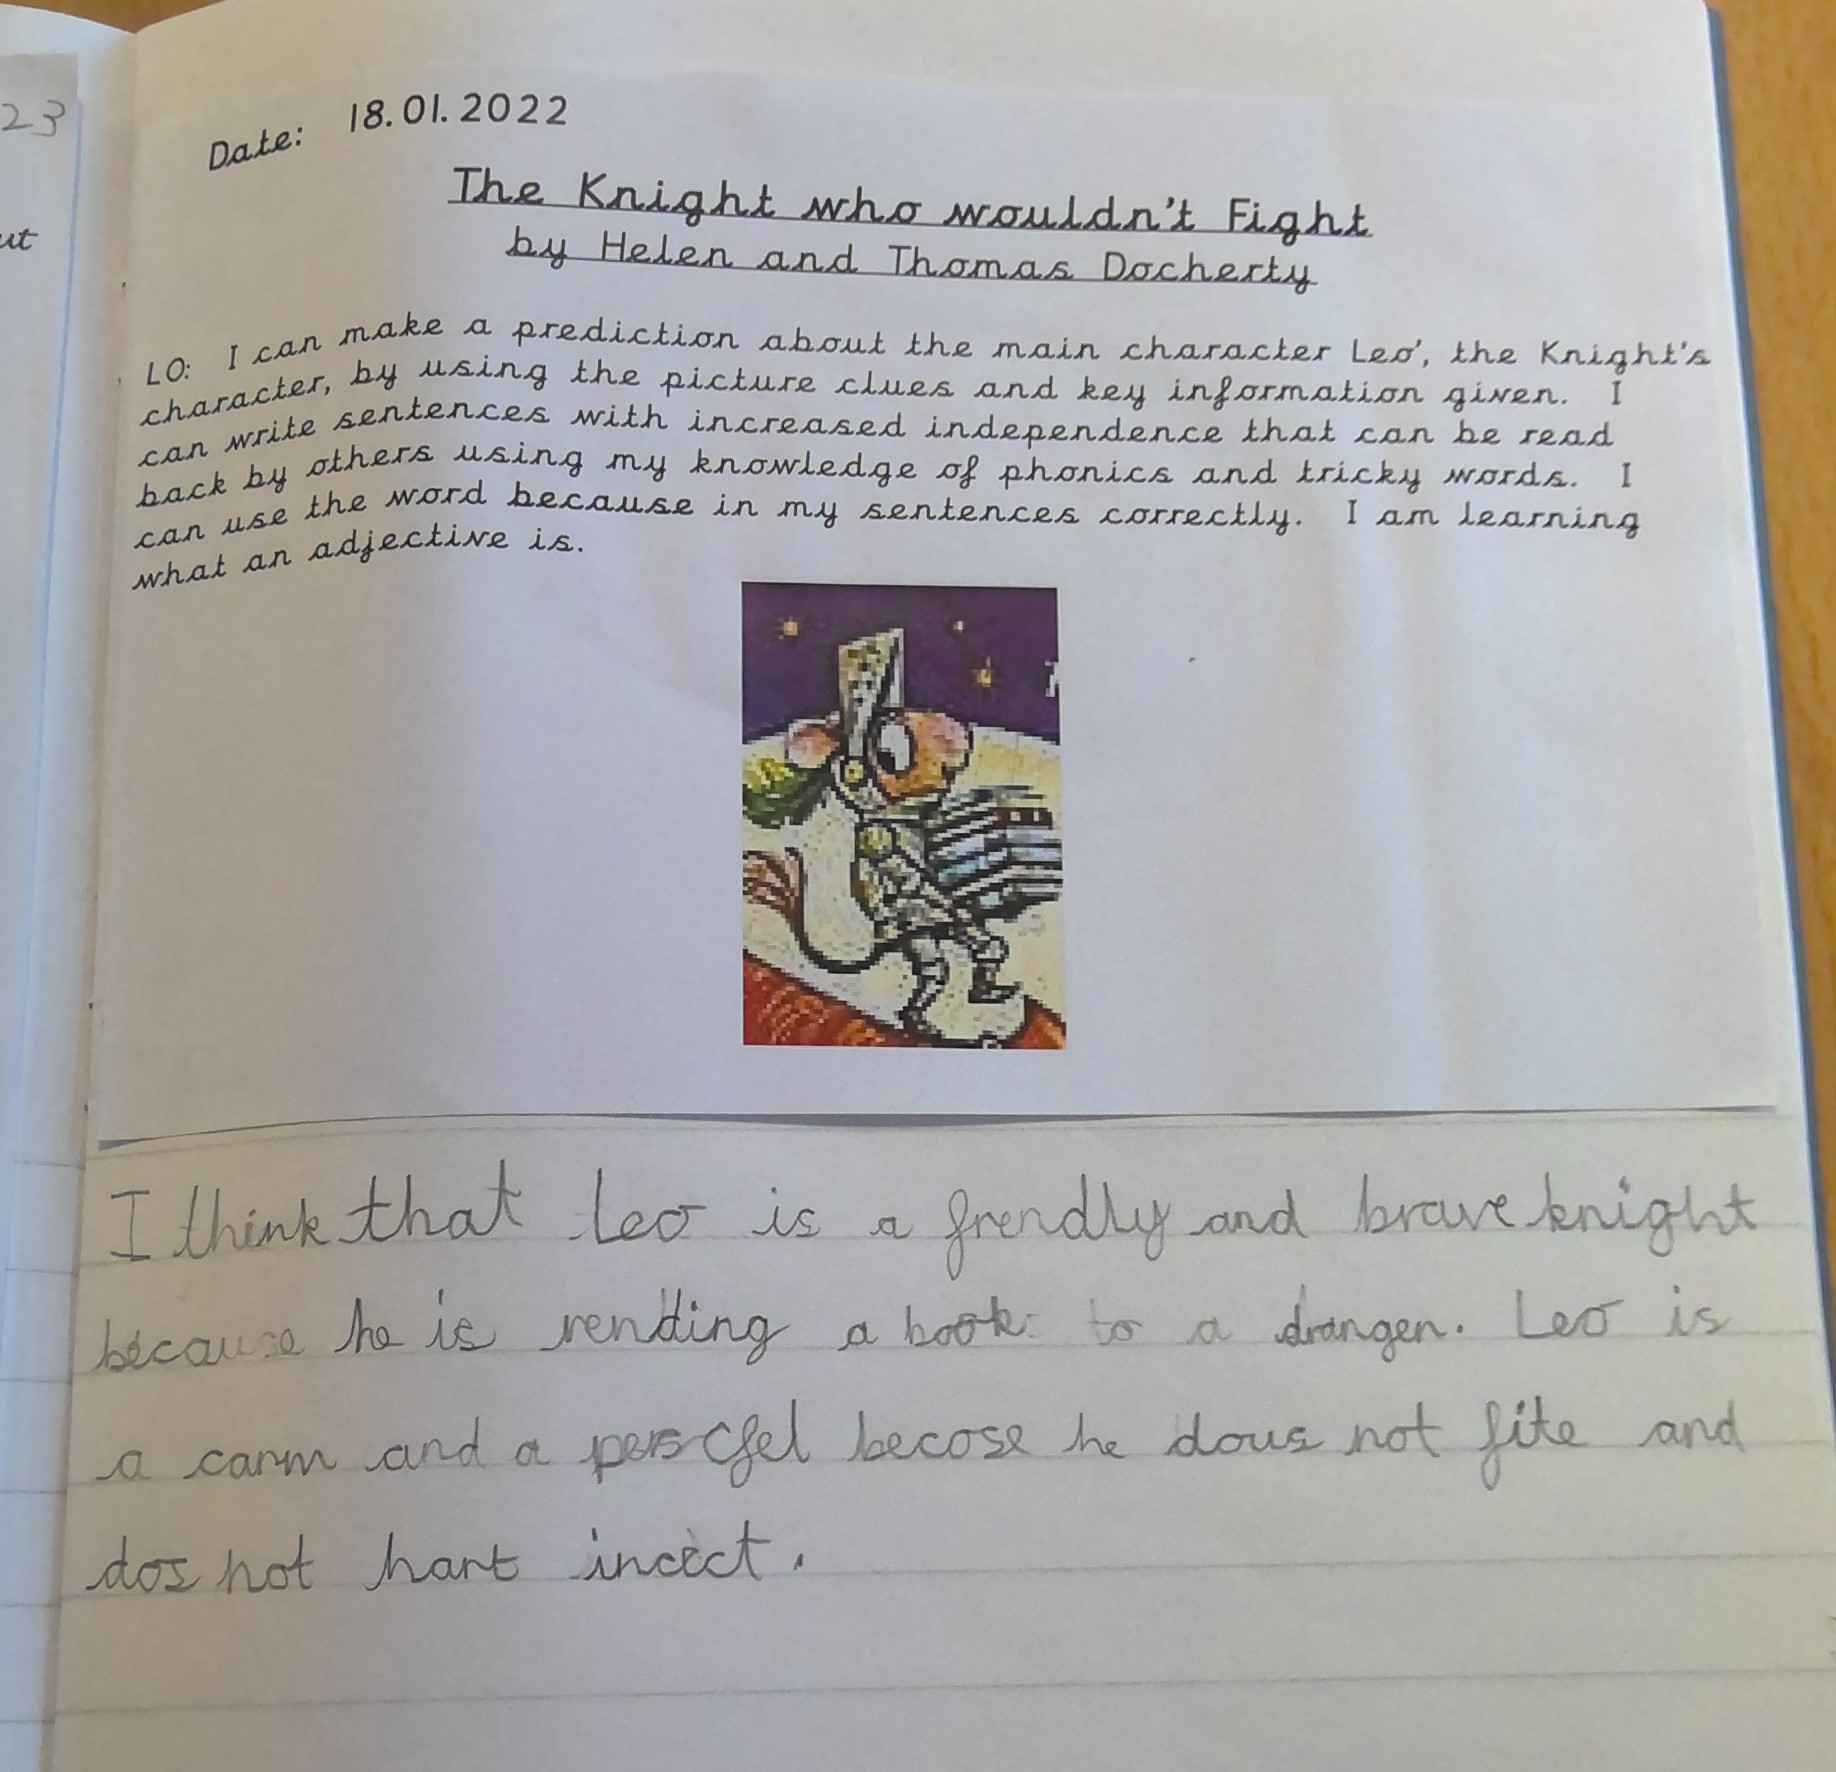 23
ut
Date: 18.01.2022
The Knight who wouldn't Fight
by Helen and Thomas Docherty
LO: I can make a prediction about the main character Leo', the Knight's
character, by using the picture clues and key information given. I
can write sentences with increased independence that can be read
back by others using my knowledge of phonics and tricky words. I
can use the word because in my sentences correctly. I am learning
what an adjective is.
I think that Leo is a frendly and brave knight
because he is rending a book to a drangen. Leo is
a carm and a becose he dous not fite and
dos not hart incect.